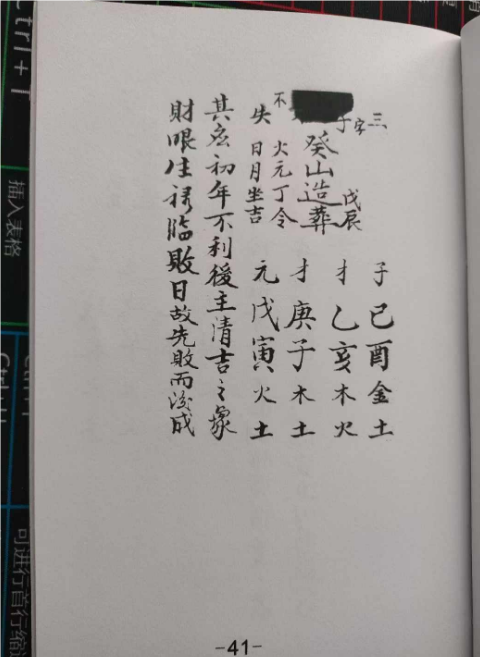 三
子己酉金土
子字
戊辰
才乙亥木火
癸山造葬
才庚子木土
不
火元丁令
失
日月坐吉
元戊寅火土
其应初年不利後主清吉之象
財眼住祿臨敗日故先敗而後成
-41-
Ctrl+T
插入表格
可进行首行缩